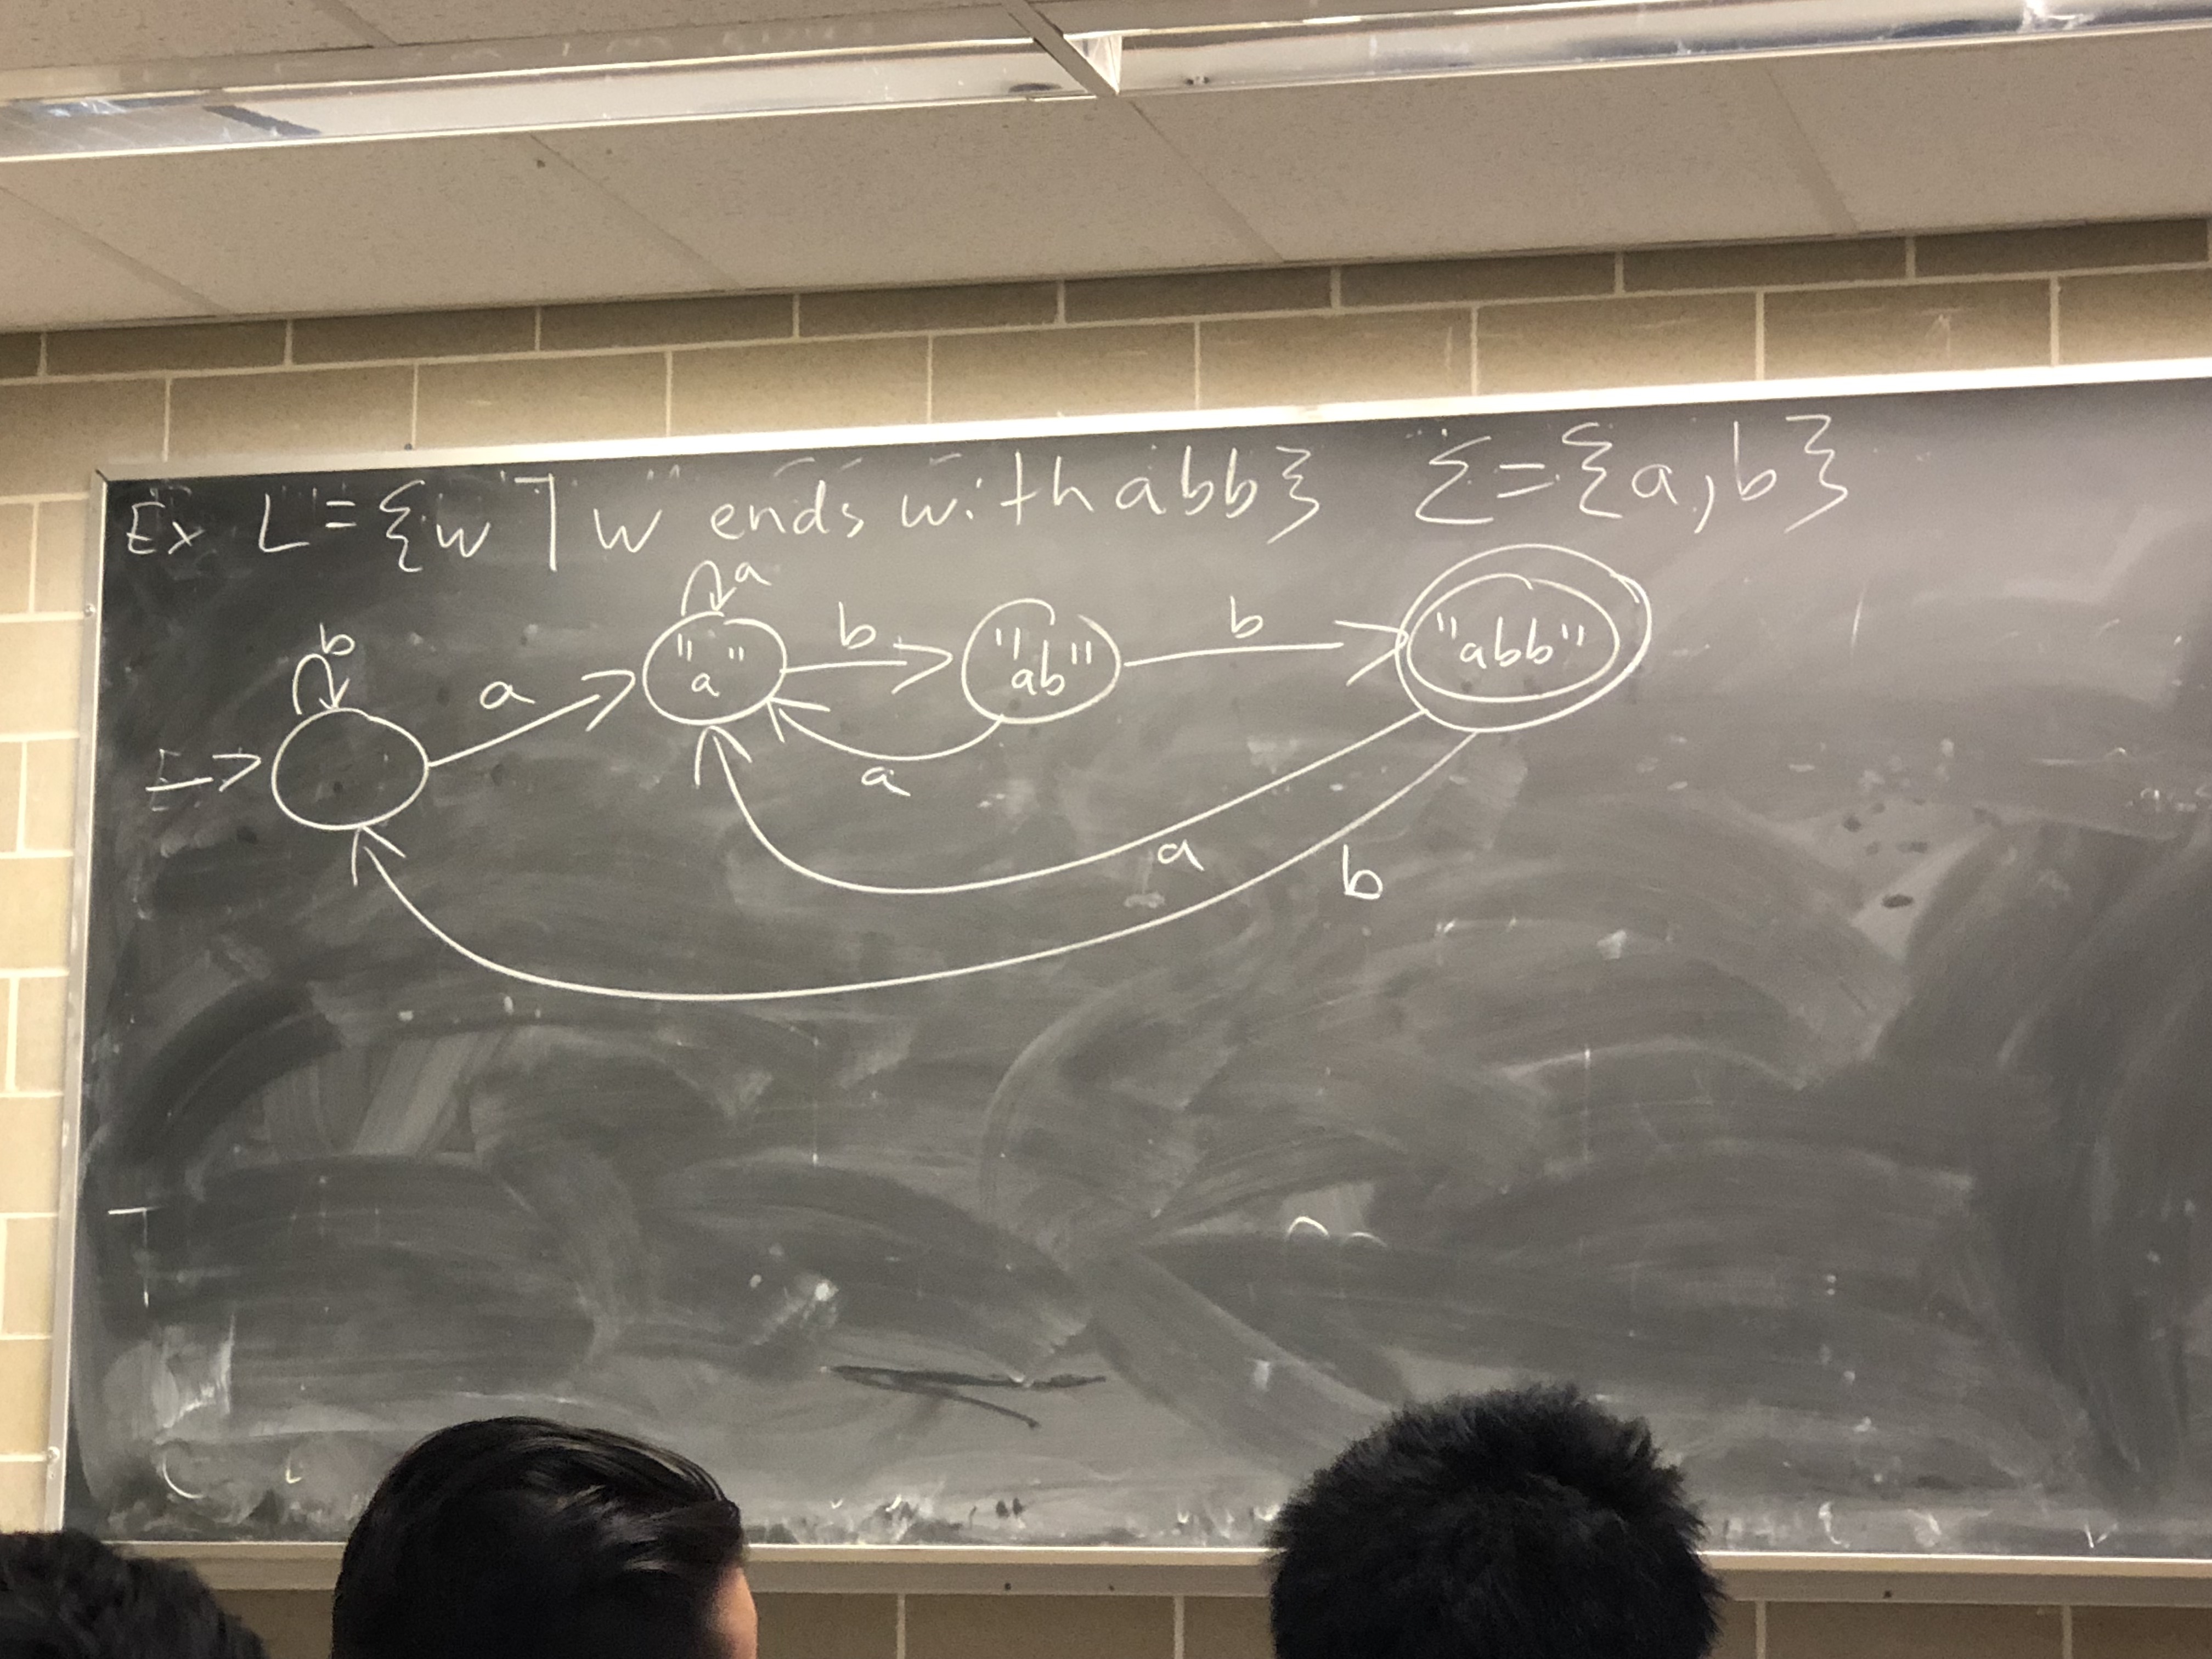 Ex L = {w | w ends with abb} Σ = {a, b}
a
b
b
b
a
"a"
"ab"
"abb"
a
a
b